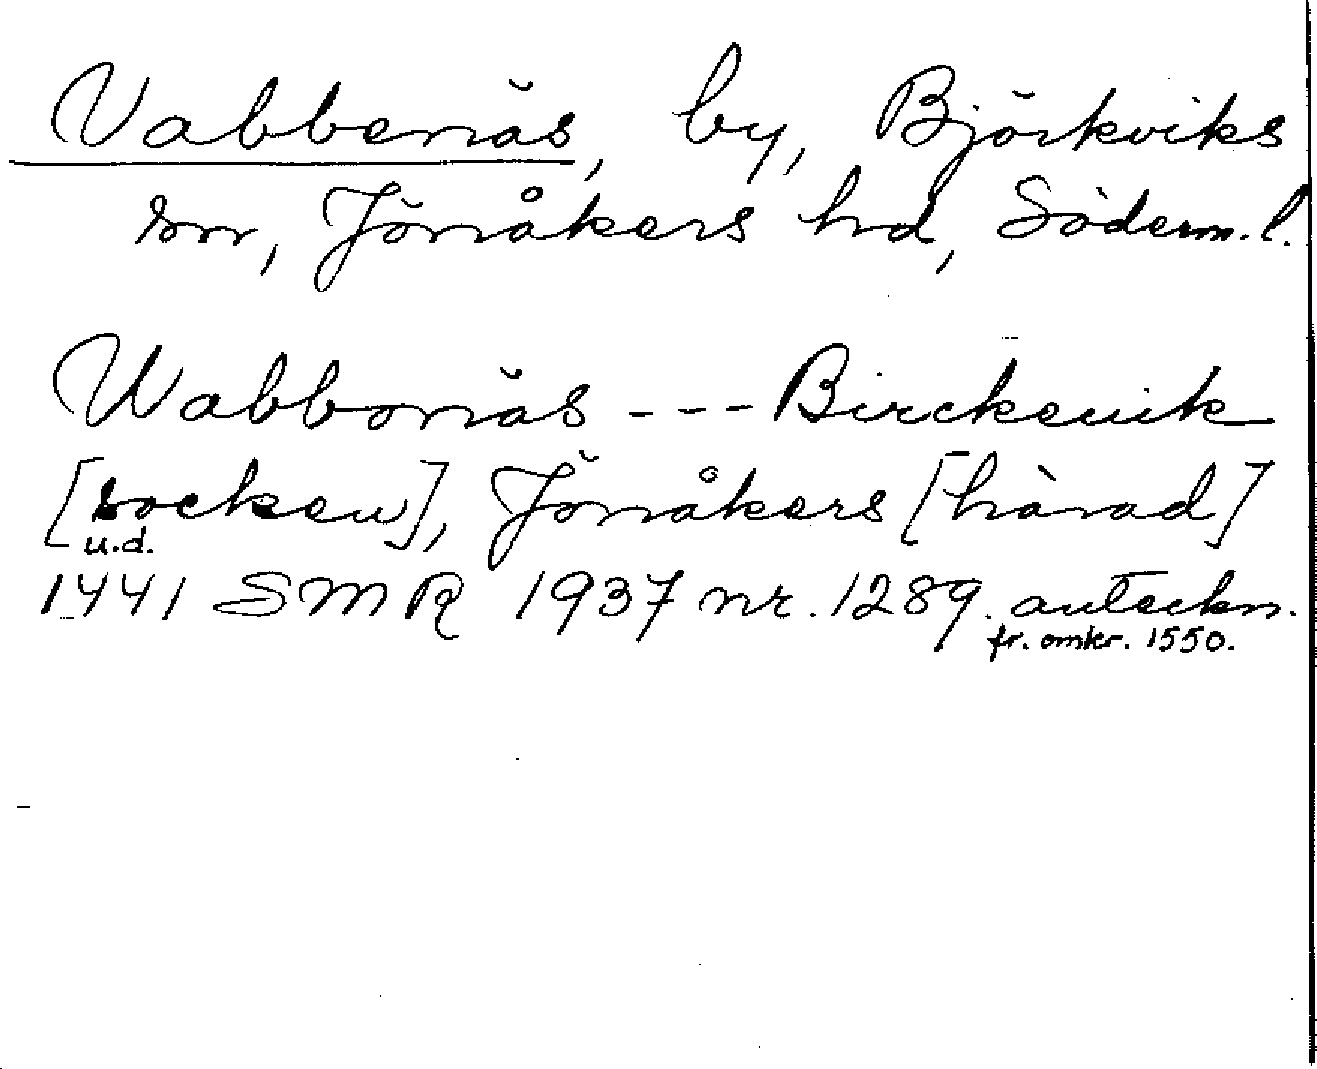 Vabbenäs, by, Björkviks
sn, Jönåkers hd, Söderm. l.
Wabbonäs --- Birckeuik
[socken], Jönåkers [härad]
u.d.
1441 SMR 1937 nr. 1289. anteckn.
fr. omkr. 1550.